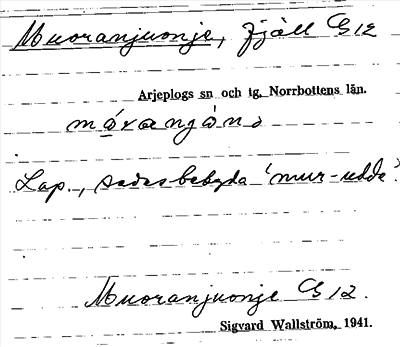 Muoranjuonje, fjäll G12
Arjeplogs sn och tg, Norrbottens län.
Lap., sades betyda 'mur-udde'.
Muoranjuonje G 12.
Sigvard Wallström, 1941.